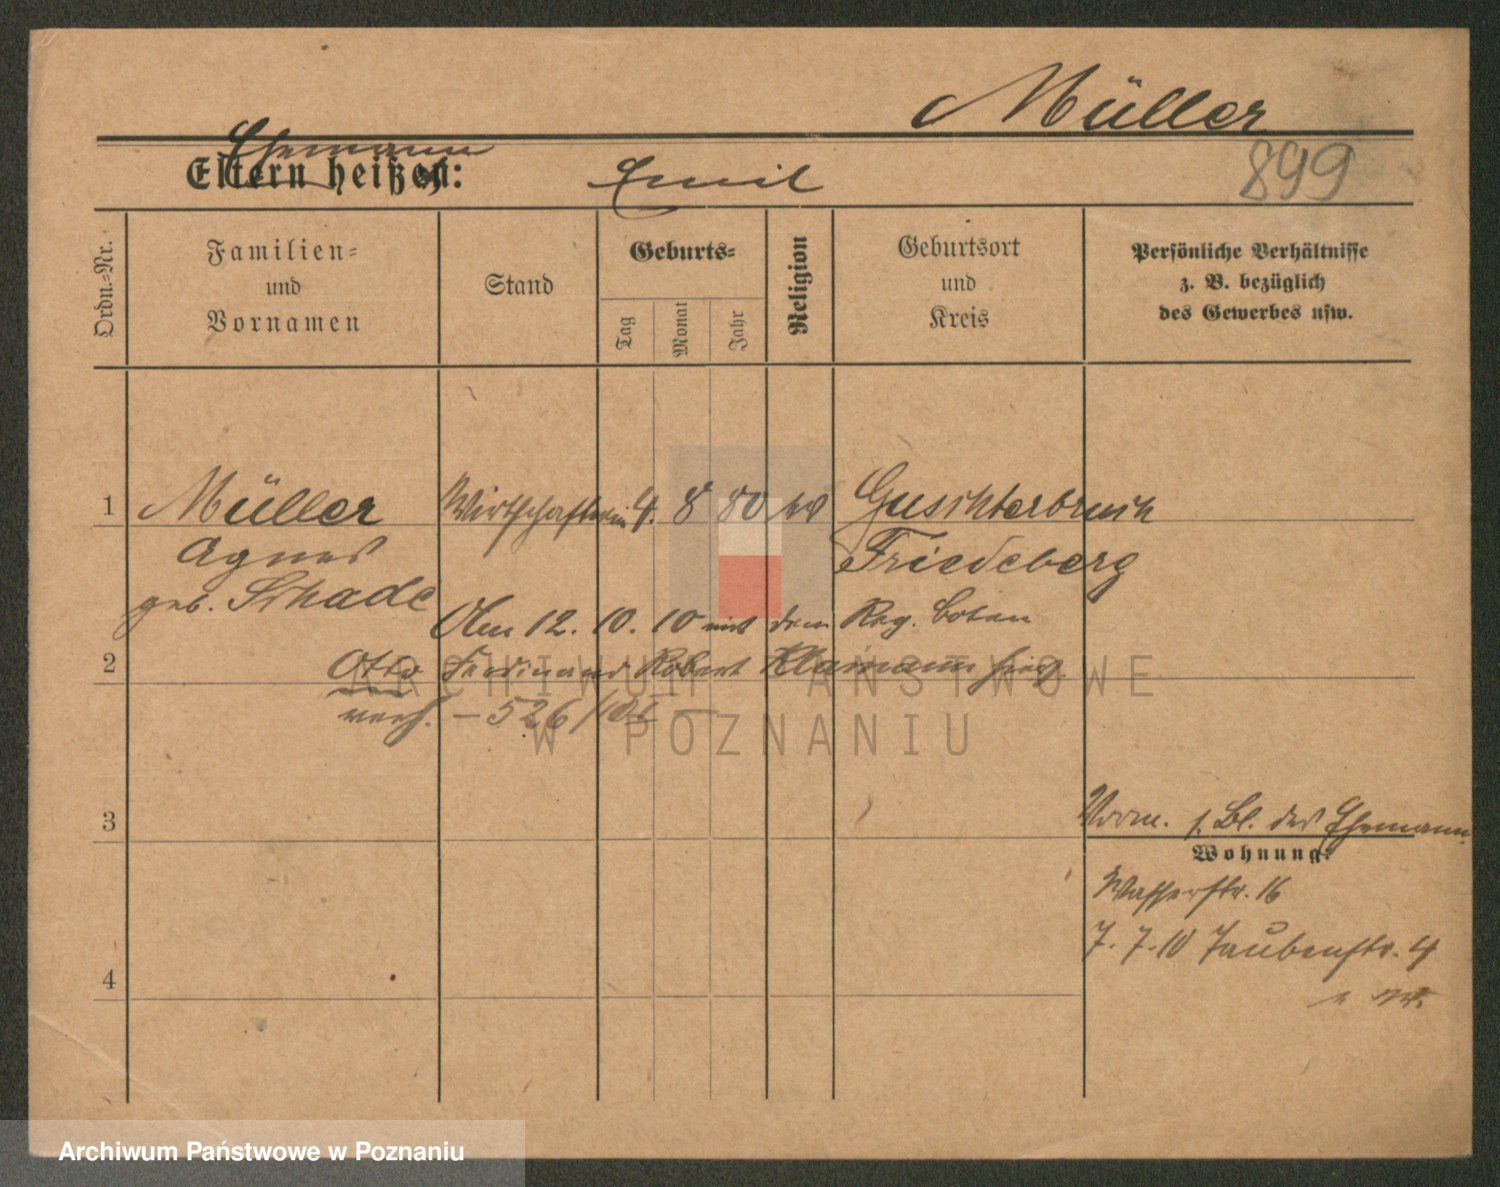 Müller
Ehemann
Eltern heißen: Emil
899
Ordn.-Nr.
Familien-
und
Vornamen
Stand
Geburts-
Tag
Monat
Jahr
Religion
Geburtsort
und
Kreis
Persönliche Verhältnisse
z. B. bezüglich
des Gewerbes usw.
1 Müller Wirthschafterin 4. 8 80 ev Guschterbruch
Agnes Friedeberg
geb. Schade
Am 12. 10. 10 mit dem Reg. boten
2 Otto Ferdinand Robert Klamann hier
verh. — 526/10 —
3
Vorm. s. Bl. des Ehemann
Wohnung:
Wasserstr. 16
7. 7. 10 Taubenstr. 4
4
ARCHIWUM PAŃSTWOWE
W POZNANIU
Archiwum Państwowe w Poznaniu